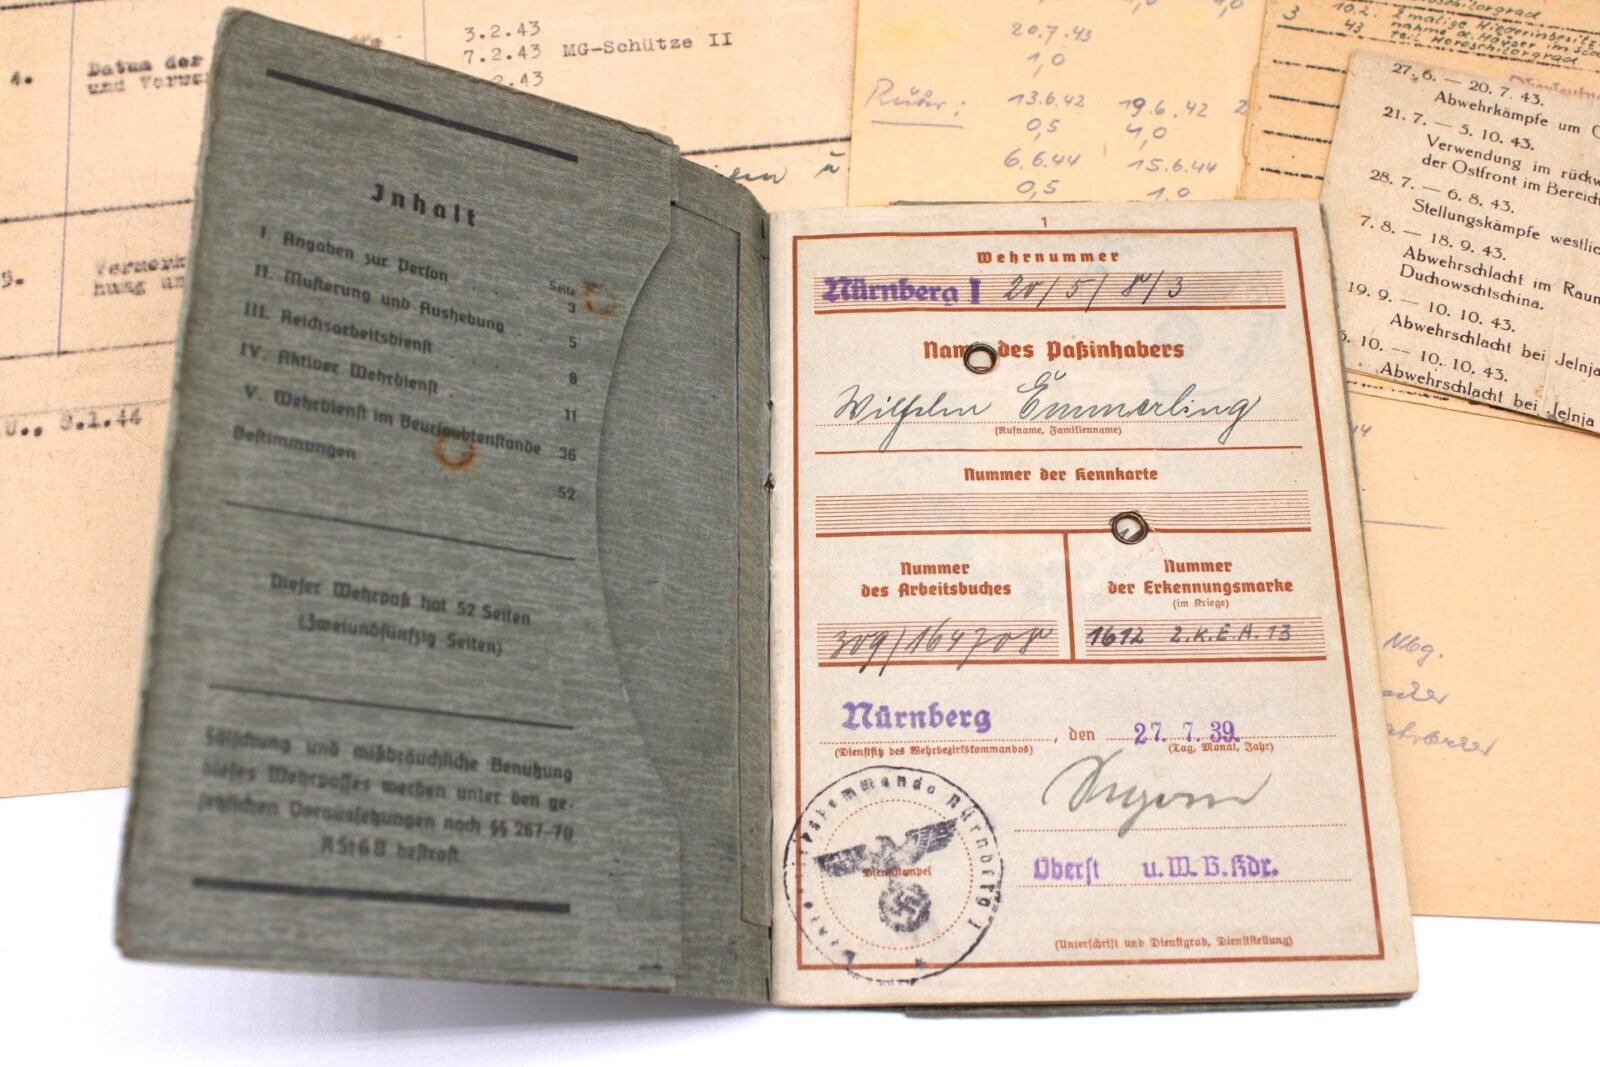 3.2.43
4. Datum der
7.2.43 MG-Schütze II
.2.43
5.
3.1.44
20.7.43
1,0
Ruhr: 13.6.42 19.6.42 2
0,5 1,0
6.6.44 15.6.44
0,5 1,0
3 10.2.
43
27. 6. — 20. 7. 43.
Abwehrkämpfe um
21. 7. — 5. 10. 43.
Verwendung im rückw
der Ostfront im Bereich
28. 7. — 6. 8. 43.
Stellungskämpfe westlic
7. 8. — 18. 9. 43.
Abwehrschlacht im Raum
Duchowschtschina.
19. 9. — 10. 10. 43.
Abwehrschlacht bei Jelnja
. 10. — 10. 10. 43.
Abwehrschlacht bei Jelnja
Nbg.
Inhalt
Seite
I. Angaben zur Person . . . . 3
II. Musterung und Aushebung . . 5
III. Reichsarbeitsdienst . . . . 8
IV. Aktiver Wehrdienst . . . . 11
V. Wehrdienst im Beurlaubtenstande 36
Bestimmungen . . . . 52
Dieser Wehrpaß hat 52 Seiten
(Zweiundfünfzig Seiten)
Fälschung und mißbräuchliche Benutzung
dieses Wehrpasses werden unter den ge-
setzlichen Voraussetzungen nach §§ 267-70
RStGB bestraft.
1
Wehrnummer
Nürnberg I 20/5/8/3
Name des Paßinhabers
Wilhelm Emmerling
(Rufname, Familienname)
Nummer der Kennkarte
Nummer
des Arbeitsbuches
309/164708
Nummer
der Erkennungsmarke
(im Kriege)
1612 2.K.E.A. 13
Nürnberg, den 27. 7. 39.
(Dienstsitz des Wehrbezirkskommandos) (Tag, Monat, Jahr)
Oberst u. W. B. Kdr.
(Unterschrift und Dienstgrad, Dienststellung)
Dienststempel
Wehrbezirkskommando Nürnberg I